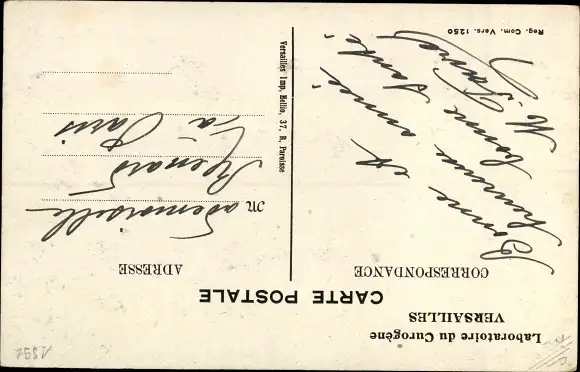 Laboratoire du Curogène
VERSAILLES
CARTE POSTALE
CORRESPONDANCE
Bonne et
heureuse année
bonne santé
M.
ADRESSE
Mademoiselle
à Paris
Versailles Imp, Bellio, 37, R, Paroisse
Reg. Com. Vers. 1250